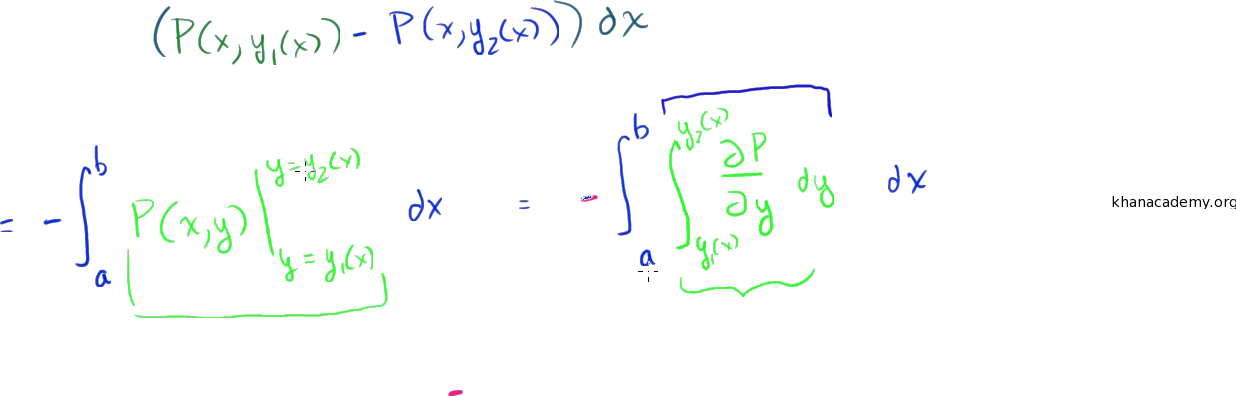 (P(x, y₁(x)) - P(x, y₂(x))) dx
= - ∫ₐᵇ P(x,y) |_{y = y₁(x)}^{y = y₂(x)} dx = - ∫ₐᵇ ∫_{y₁(x)}^{y₂(x)} ∂P/∂y dy dx
khanacademy.org
-